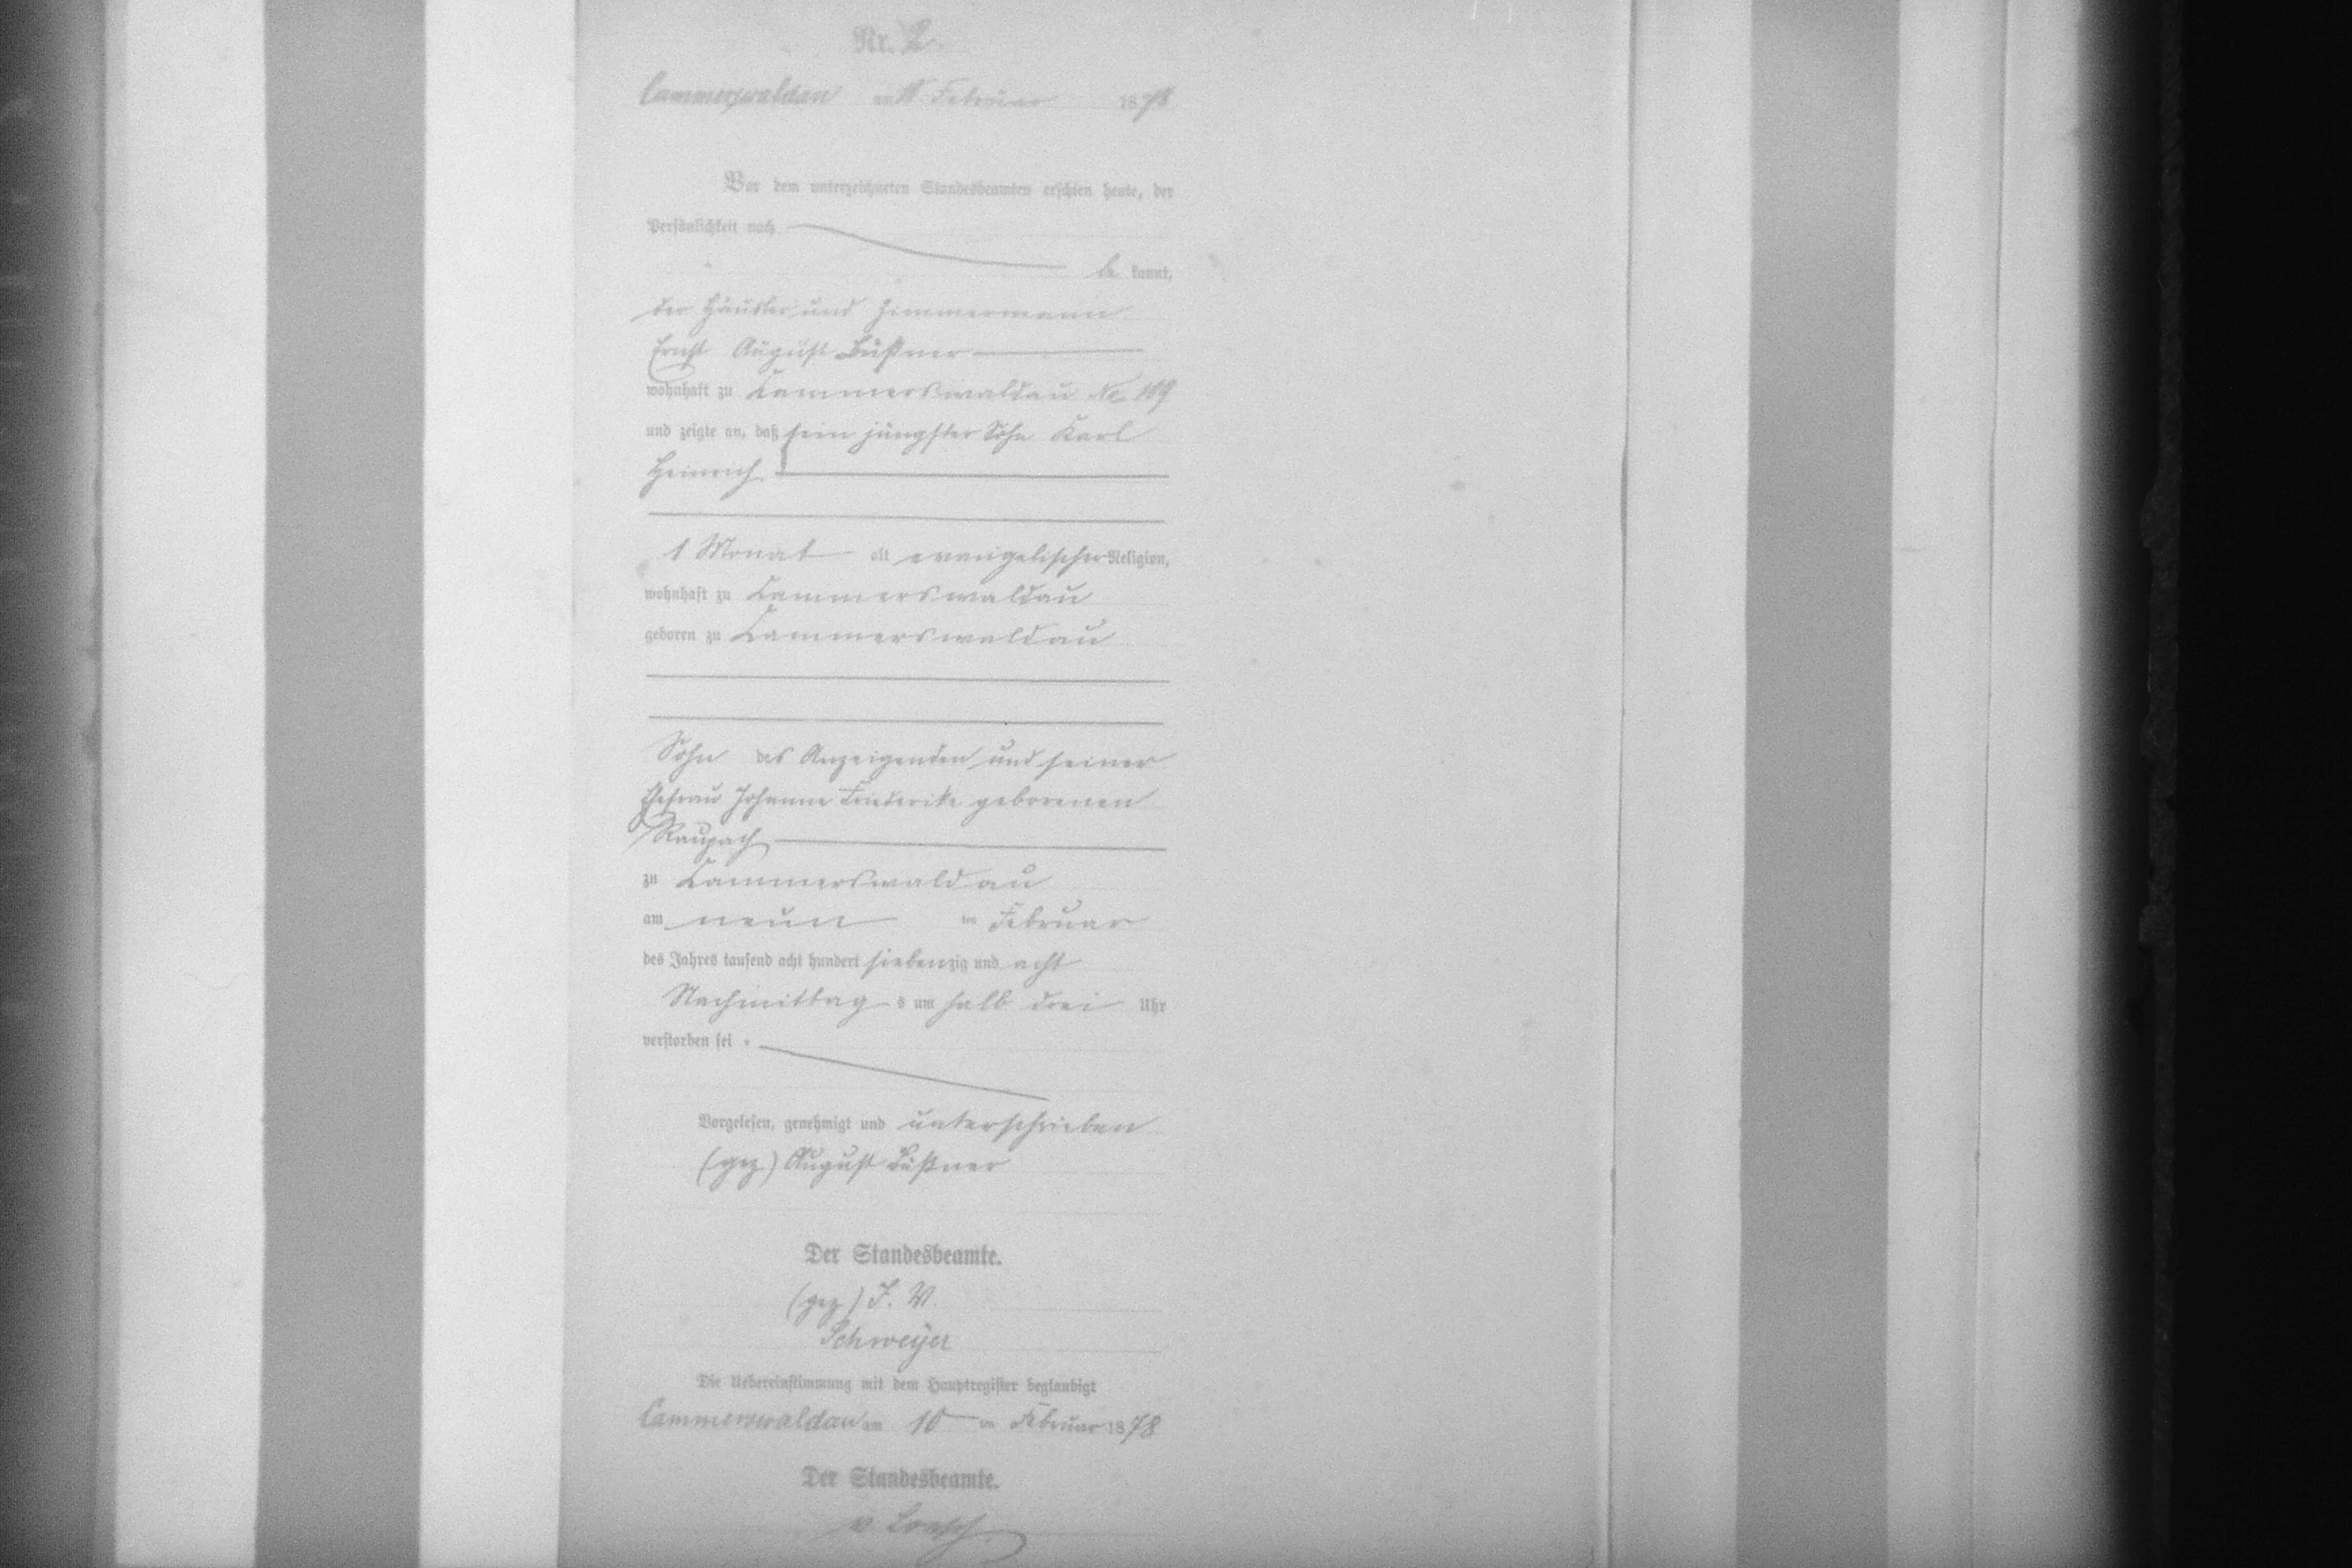 Nr. 2
Cammerswaldau am 10 Februar 1878
Vor dem unterzeichneten Standesbeamten erschien heute, der
Persönlichkeit nach
be kannt,
der Häusler und Zimmermann
Ernst August Büßner
wohnhaft zu Kammerswaldau No 109
und zeigte an, daß sein jüngster Sohn Karl
Heinrich
1 Monat alt evangelischer Religion,
wohnhaft zu Kammerswaldau
geboren zu Kammerswaldau
Sohn des Anzeigenden und seiner
Ehefrau Johanne Friederike geborenen
Raupach
zu Kammerswaldau
am neun ten Februar
des Jahres tausend acht hundert siebenzig und acht
Nachmittag s um halb drei Uhr
verstorben sei.
Vorgelesen, genehmigt und unterschrieben
(gez) August Büßner
Der Standesbeamte.
(gez) J. V.
Schweijer
Die Uebereinstimmung mit dem Hauptregister beglaubigt
Cammerswaldau am 10 ten Februar 1878
Der Standesbeamte.